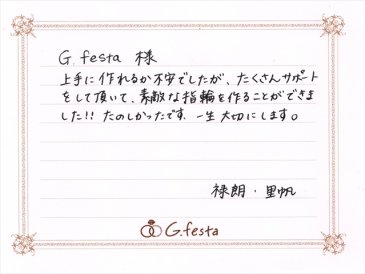 G.festa 様
上手に作れるか不安でしたが、たくさんサポート
をして頂いて、素敵な指輪を作ることができま
した!! たのしかったです 一生大切にします。
禄朗・里帆
G.festa